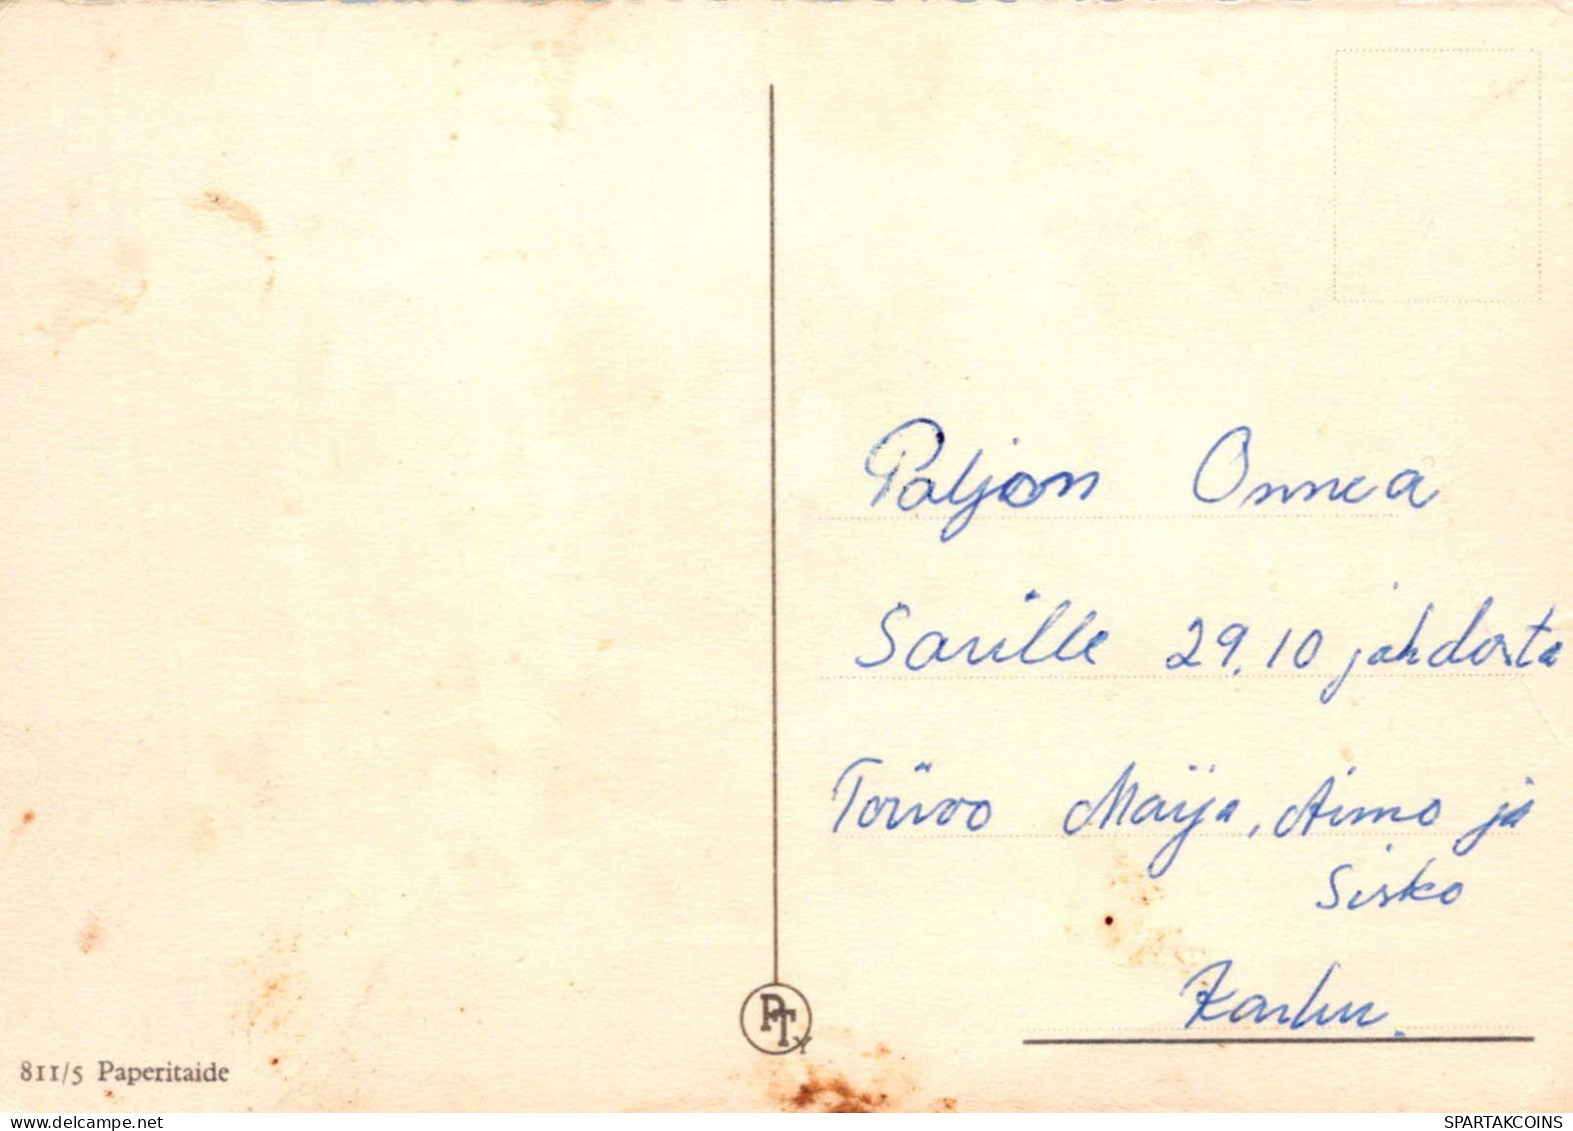 Paljon Onnea
Sarille 29.10 johdosta
Toivoo Maija, Aimo ja
Sisko
Karhu.
PTY
811/5 Paperitaide
www.delcampe.net
SPARTAKCOINS